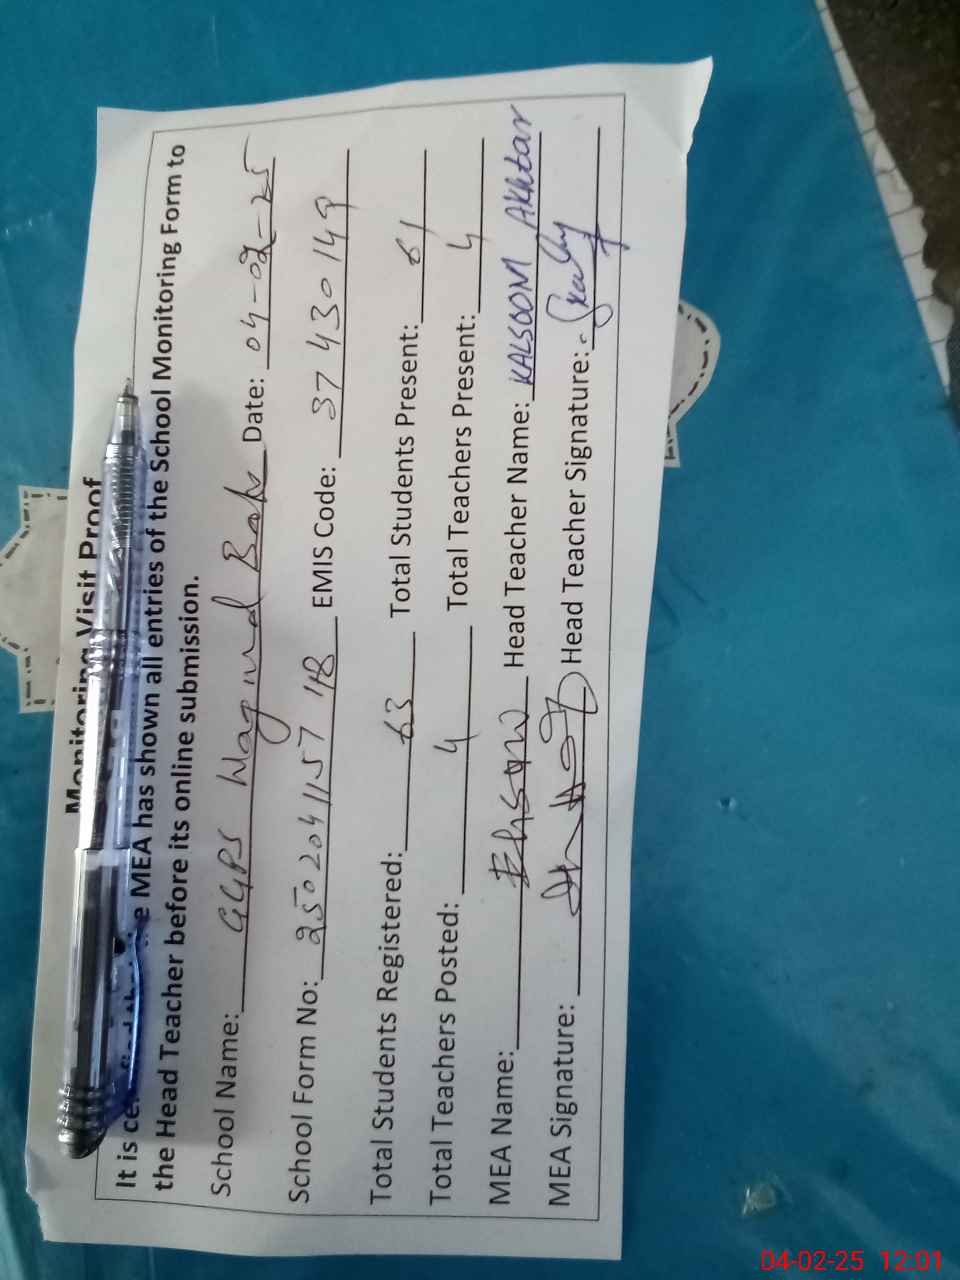 Monitoring Visit Proof
It is MEA has shown all entries of the School Monitoring Form to
the Head Teacher before its online submission.
School Name: GGPS Date: 04-02-25
School Form No: 2502041157 148 EMIS Code: 37430149
Total Students Registered: 63 Total Students Present: 61
Total Teachers Posted: 4 Total Teachers Present: 4
MEA Name: Head Teacher Name: KALSOOM Akhtar
MEA Signature: Head Teacher Signature:
04-02-25 12:01